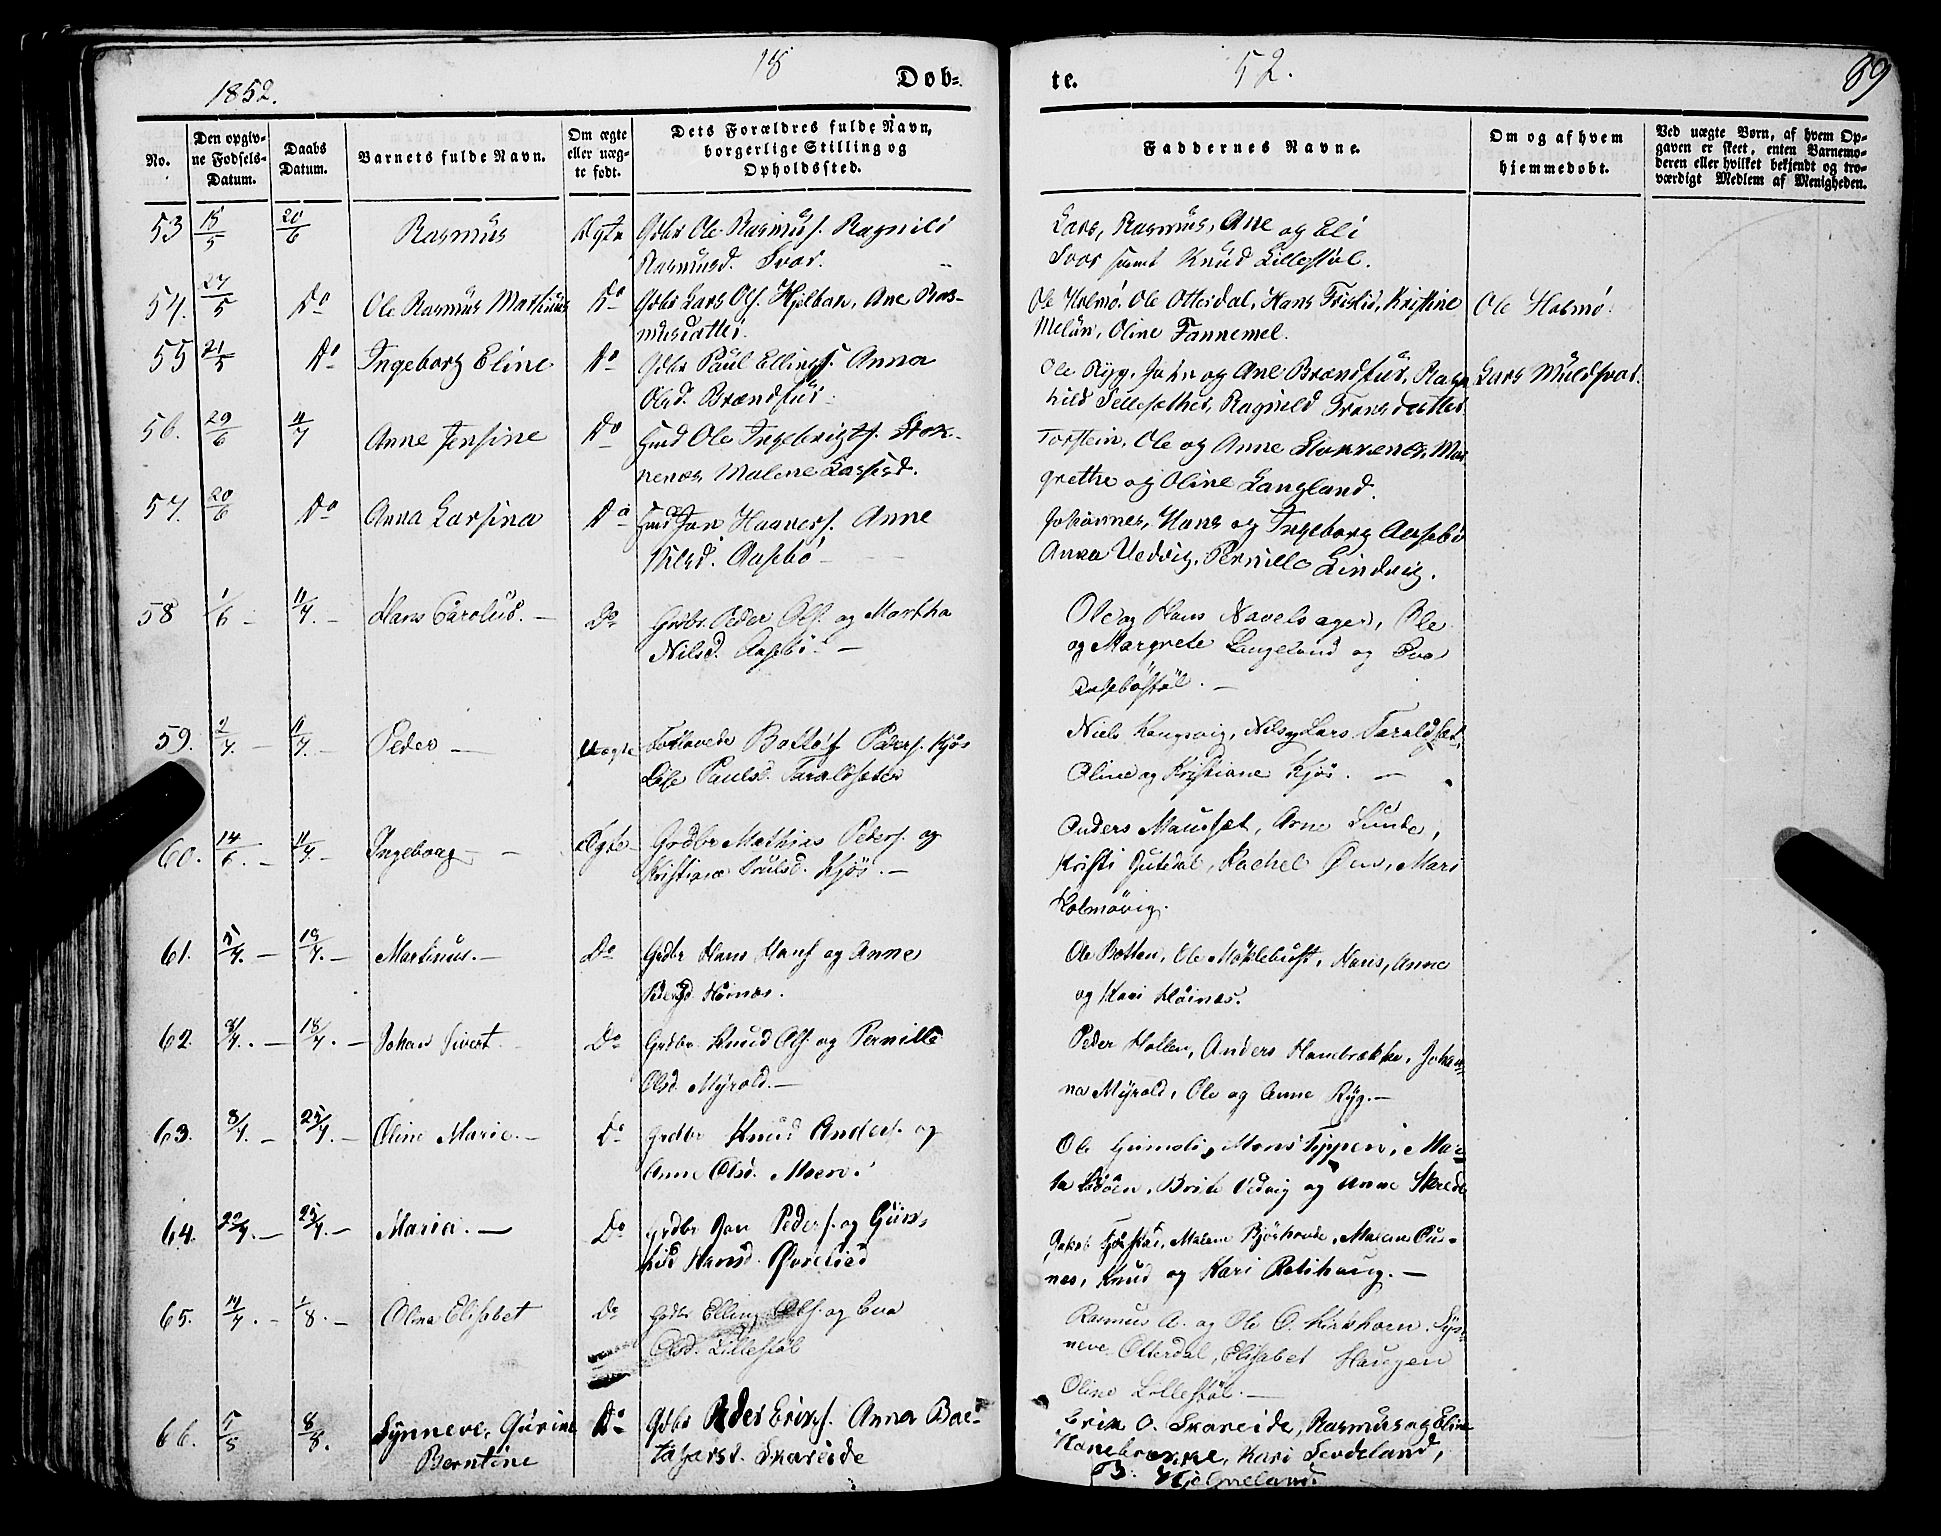 1852. 18 Døb-
te. 52. 89
No.
Den opgiv-
ne Fødsels-
Datum.
Daabs
Datum.
Barnets fulde Navn.
Om ægte
eller uæg-
te født.
Dets Forældres fulde Navn,
borgerlige Stilling og
Opholdssted.
Faddernes Navne.
Om og af hvem
hjemmedøbt.
Ved uægte Børn, af hvem Op-
gaven er skeet, enten Barnemo-
deren eller hvilket bekjendt og tro-
værdigt Medlem af Menigheden.
53 15/5 20/6 Rasmus Ægte Gdbr Ole Rasmus. Ragnild
Rasmusd. Svor.
Lars, Rasmus, Ane og Eli
Svor samt Knud Lillestøl.
54. 27/5 Do Ole Rasmus Martinus Do Gdbr Lars Ols. Hjelban, Ane Ras-
musdatter
Ole Holmø, Ole Otterdal, Hans Kristine
Melün, Oline Tannemel.
Ole Holmø.
55 21/5 Do Ingeborg Eline Do Gdbr Paul Ellings. Anna
Olsd. Brændhus.
Ole Ryg, John og Ane Brændhus, Ragn
hild Sellesæther, Ragnild Fransdatter
Lars Muldsvor.
56. 29/6 11/7 Anne Jensine Do Huusmd Ole Ingebrigts. Stok-
nenes, Malene Lassesd.
Torstein, Ole og Anne Stoknenes, Mar
grethe og Oline Langland.
57. 20/6 Do Anna Larsina Do Jon Anne
Nilsd. Aasebø
Johannes, Hans og Ingeborg Aasebø
Anna Vedvig, Pernille Lindvig.
58 1/6 11/7 Hans Carolus. Do Grdbr. Peder Ols. og Martha
Nilsd. Aasebø.
Ole og Hans Navelsager, Ole
og Margrete Langeland og Eva
Aasebøstøl.
59. 2/7 11/7 Peder Uægte Forlovede Bottolf Peders. Kjøs
Lise Paulsd. Taraldsæter
Niels Langevig, Nils og Lars Taraldsæt,
Oline og Kristiane Kjøs.
60. 14/6 11/7 Ingeborg Ægte Grdbr Mathias Peders. og
Kristiane Kjøs.
Anders Maursæt, Arne Lunde,
Kristi Rachel Øen, Mari
Holmøvig.
61. 5/7 19/7 Martinus. Do Grdbr Hans Hans og Anne
Pedersd Høinæs.
Ole Botten, Ole Møklebust, Hans, Anne
og Kari Høinæs.
62. 8/7 18/7 Johan Sivert Do Grdbr Knud Ols. og Pernille
Olsd. Myrold.
Peder Hollen, Anders Hanebrække, Johan-
na Myrold, Ole og Anne Ryg.
63. 8/7 25/7 Oline Marie. Do Grdbr Knud Anders. og
Anne Olsd. Moen.
Ole Mons Tippen, Mar-
ta Løøen, Brite Vedvig og Anne Skrede
64. 20/7 25/7 Maria. Do Grdbr Jon Peders. og Gun-
hild Hansd. Øvrelied
Jakob Malene Malene Aur-
nes, Knud og Kari Rotihaug.
65. 11/7 1/8 Olina Elisabet Do Gdbr Elling Ols. og Eva
Olsd. Lillestøl
Rasmus A. og Ole O. Kirkhorn, Syn-
neve Otterdal, Elisabet Haugen
Oline Lillestøl.
66. 5/8 8/8. Synneve Gurine
Berntine
Do Gdbr Peder Eriks. Anna Bal-
tasarsd. Skareide
Erik O. Skareide, Rasmus og Eline
Hanebrække, Kari Levdeland,
B. Hjelmeland.